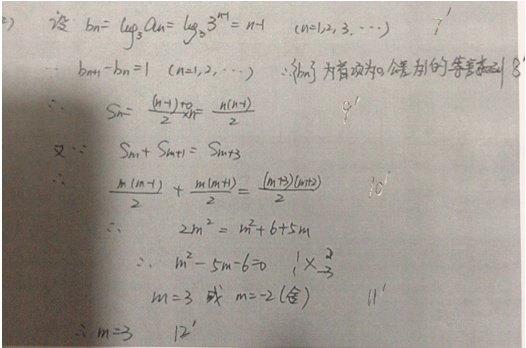 2) 设 bn = log₃an = log₃3ⁿ⁻¹ = n-1 (n=1,2,3,…) 7'
bn+1-bn=1 (n=1,2,…) ∴{bn}为首项为0公差为1的等差数列 8'
∴ Sn = (n-1)+0/2 ×n = n(n-1)/2 9'
又∵ Sm + Sm+1 = Sm+3
∴ m(m-1)/2 + m(m+1)/2 = (m+3)(m+2)/2 10'
∴ 2m² = m²+6+5m
∴ m²-5m-6=0 1 1 × 2 -3
m=3 或 m=-2(舍) 11'
∴m=3 12'